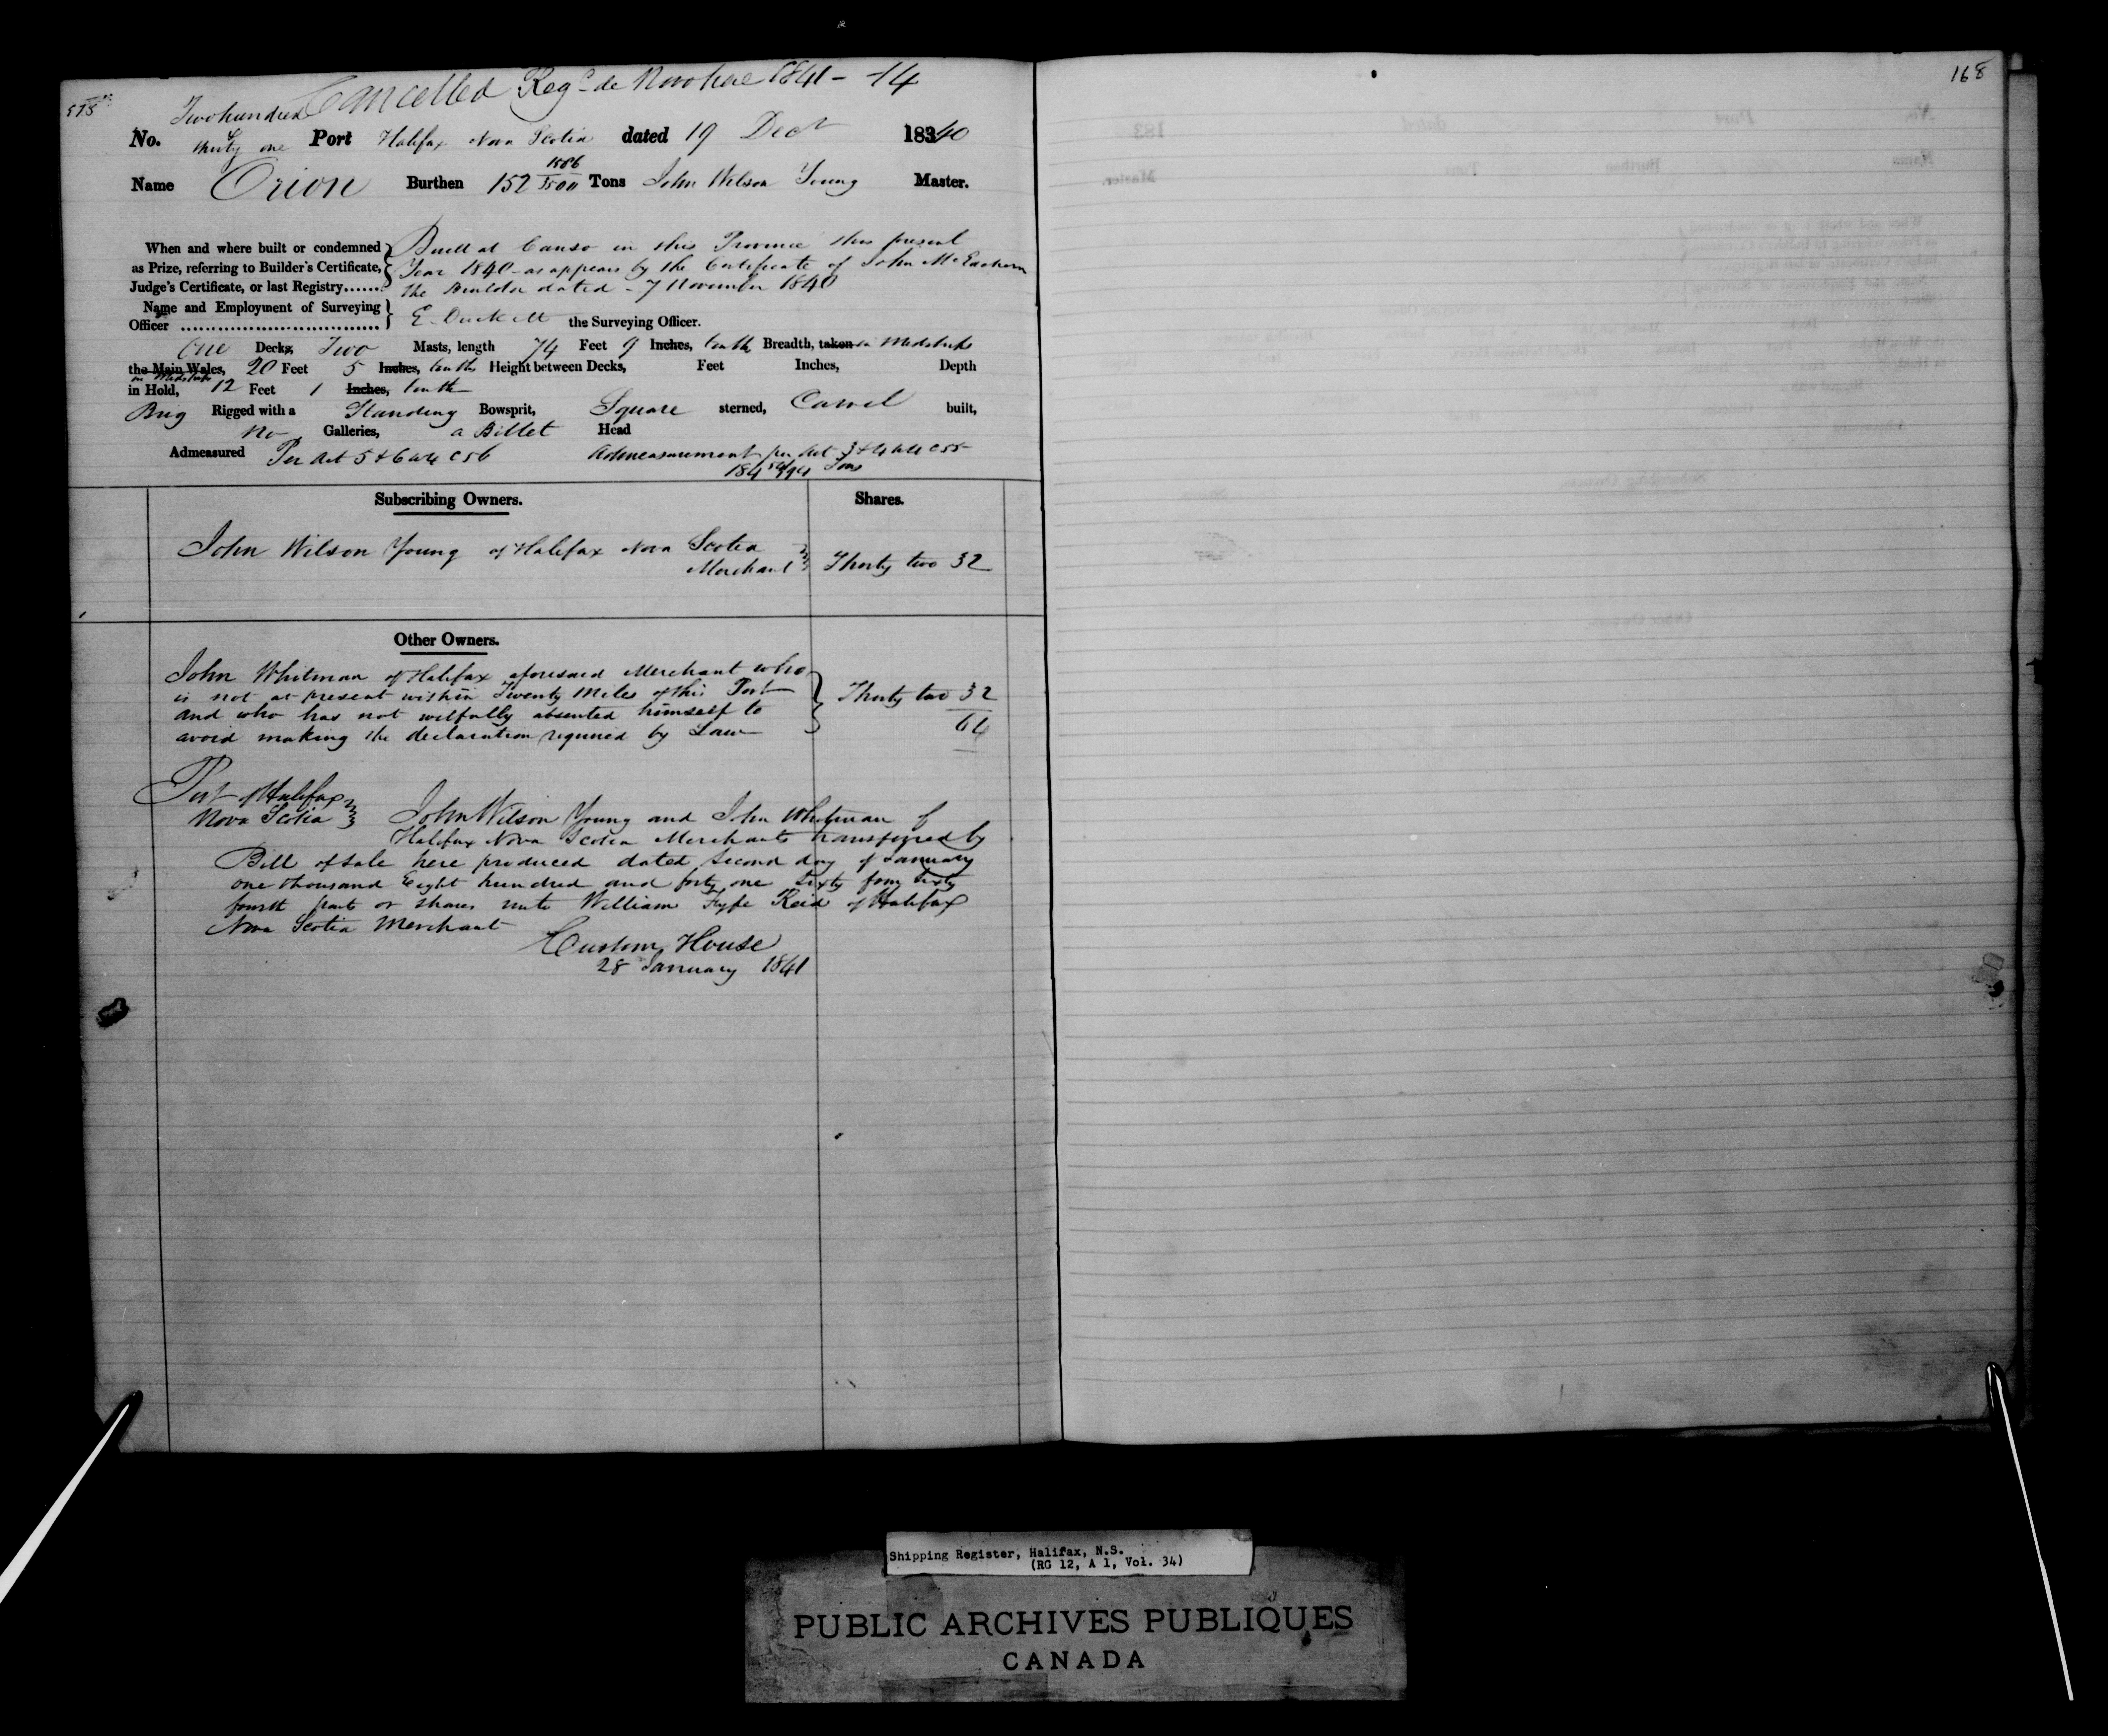 Cancelled Regd de Novo here 1841 - 14
168
Two hundred
No. thirty one Port Halifax Nova Scotia dated 19 Decr 18340
Name Orion Burthen 152 1886/3500 Tons John Wilson Young Master.
When and where built or condemned as Prize, referring to Builder's Certificate, Judge's Certificate, or last Registry......
Built at Canso in this Province this present
Year 1840 - as appears by the Certificate of John McEachern
the Builder dated - 7 November 1840
Name and Employment of Surveying
Officer E. Duckett the Surveying Officer.
One Decks, Two Masts, length 74 Feet 9 Inches, tenths Breadth, taken in Midships
the Main Wales, 20 Feet 5 Inches, tenths Height between Decks, Feet Inches, Depth
in Midships
in Hold, 12 Feet 1 Inches, tenth
Brig Rigged with a Standing Bowsprit, Square sterned, Carvel built,
No Galleries, a Billet Head
Admeasured Per Act 5 & 6 W 4 C 56 Admeasurement per Act 3 & 4 W 4 C 55
184 Tons
Subscribing Owners. Shares.
John Wilson Young of Halifax Nova Scotia
Merchant Thirty two 32
Other Owners.
John Whitman of Halifax aforesaid Merchant who
is not at present within Twenty Miles of this Port Thirty two 32
and who has not wilfully absented himself to 64
avoid making the declaration required by Law
Port of Halifax
Nova Scotia John Wilson Young and John Whitman of
Halifax Nova Scotia Merchants transferred by
Bill of Sale here produced dated Second day of January
one thousand Eight hundred and forty one Sixty four Sixty
fourth part or shares unto William Fyfe Reid of Halifax
Nova Scotia Merchant
Custom House
28 January 1841
Shipping Register, Halifax, N.S.
(RG 12, A 1, Vol. 34)
PUBLIC ARCHIVES PUBLIQUES
CANADA